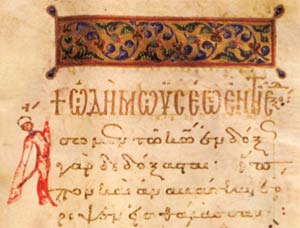 + ΩΔΗ ΜΩΥΣΕΩ ΕΝ Τῌ Ε
σωμεν τῶ κ̅ω̅ ἐνδόξ
γὰρ δεδόξασται· ἵπ
πον καὶ ἀναβάτην ἔρ
ριψεν εἰς θάλασσαν